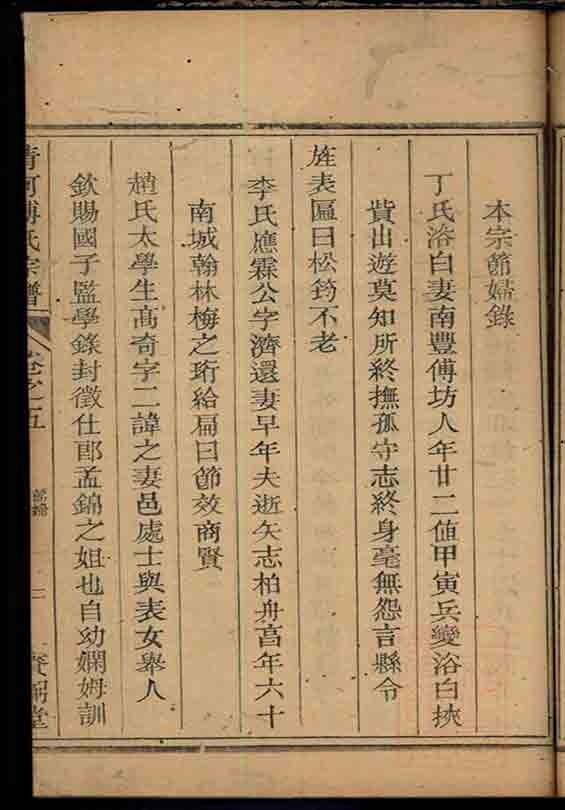 本宗節婦錄
丁氏浴白妻南豐傅坊人年廿二値甲寅兵變浴白挾
貲出遊莫知所終撫孤守志終身毫無怨言縣令
旌表匾曰松筠不老
李氏應霖公字濟還妻早年夫逝矢志柏舟亯年六十
南城翰林梅之珩給扁曰節效商賢
趙氏太學生髙奇字二諱之妻邑處士與表女舉人
欽賜國子監學錄封徵仕郎孟錦之姐也自幼嫻姆訓
清河傅氏宗譜
卷之五